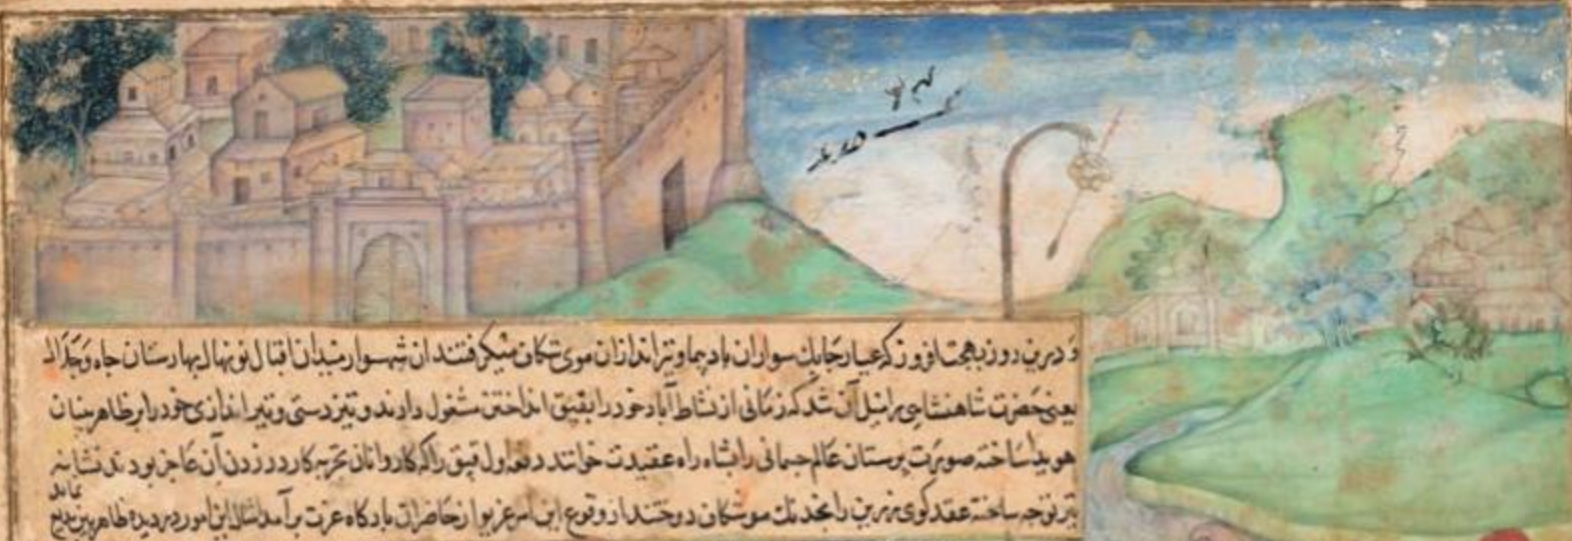 و درین روز بهجت افروز که عیار چابک سواران بادپیما و تیراندازان موی شکاف میگرفتند آن شهسوار میدان اقبال نونهال بهارستان جاه و جلال
یعنی حضرت شاهنشاهی را میل آن شد که زمانی از نشاط آباد خود را بقبق انداختن مشغول دارند و تیزدستی و تیراندازی خود را بر ظاهربینان
هویدا ساخته صورت پرستان عالم جسمانی را بشاه راه عقیدت خوانند دفعه اول قبق را که کاروانان تجربه کار در زدن آن عاجز بودند نشانه
تیر توجه ساخته عقد کوی زرین را بخدنک موشکاف دوختند از وقوع این امر غریو از حاضران بارکاه عزت برآمد امثال این امور در دیده ظاهربین
نماید